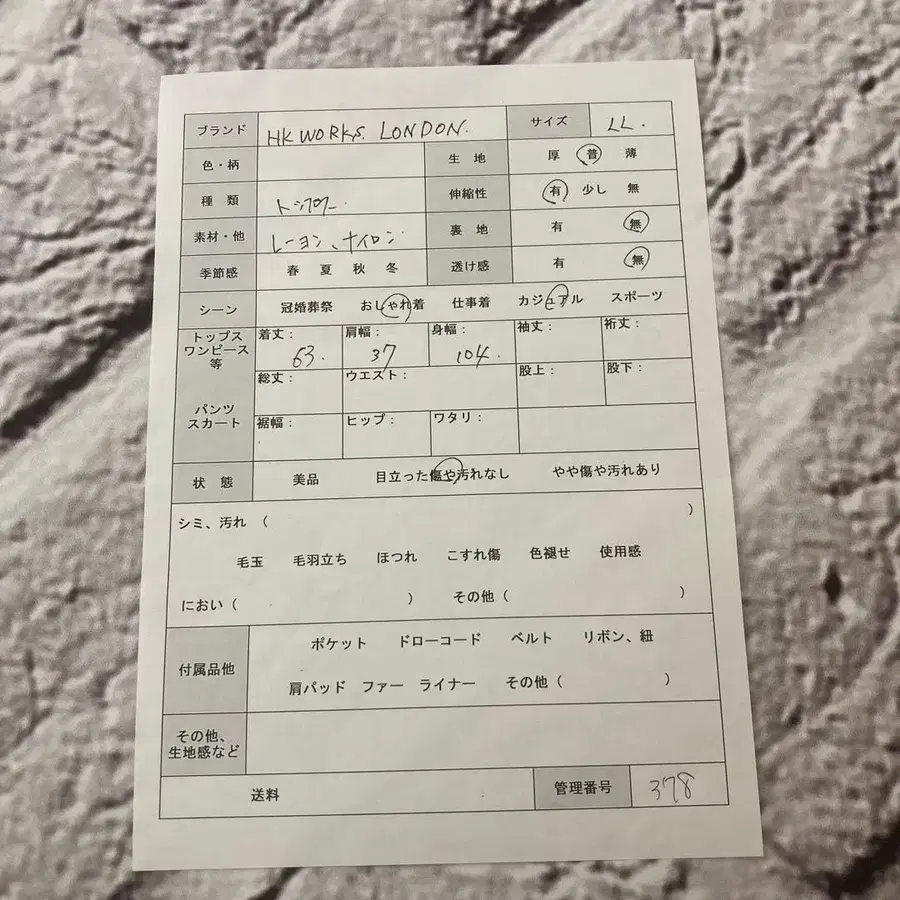 ブランド HK WORKS. LONDON. サイズ LL.
色・柄 生 地 厚 普 薄
種 類 伸縮性 有 少し 無
素材・他 レーヨン、ナイロン 裏 地 有 無
季節感 春 夏 秋 冬 透け感 有 無
シーン 冠婚葬祭 おしゃれ着 仕事着 カジュアル スポーツ
トップス ワンピース 等 着丈: 63. 肩幅: 37 身幅: 104. 袖丈: 裄丈:
パンツ スカート 総丈: ウエスト: 股上: 股下:
裾幅: ヒップ: ワタリ:
状 態 美品 目立った傷や汚れなし やや傷や汚れあり
シミ、汚れ ( )
毛玉 毛羽立ち ほつれ こすれ傷 色褪せ 使用感
におい ( ) その他 ( )
付属品他 ポケット ドローコード ベルト リボン、紐
肩パッド ファー ライナー その他 ( )
その他、
生地感など
送料 管理番号 378